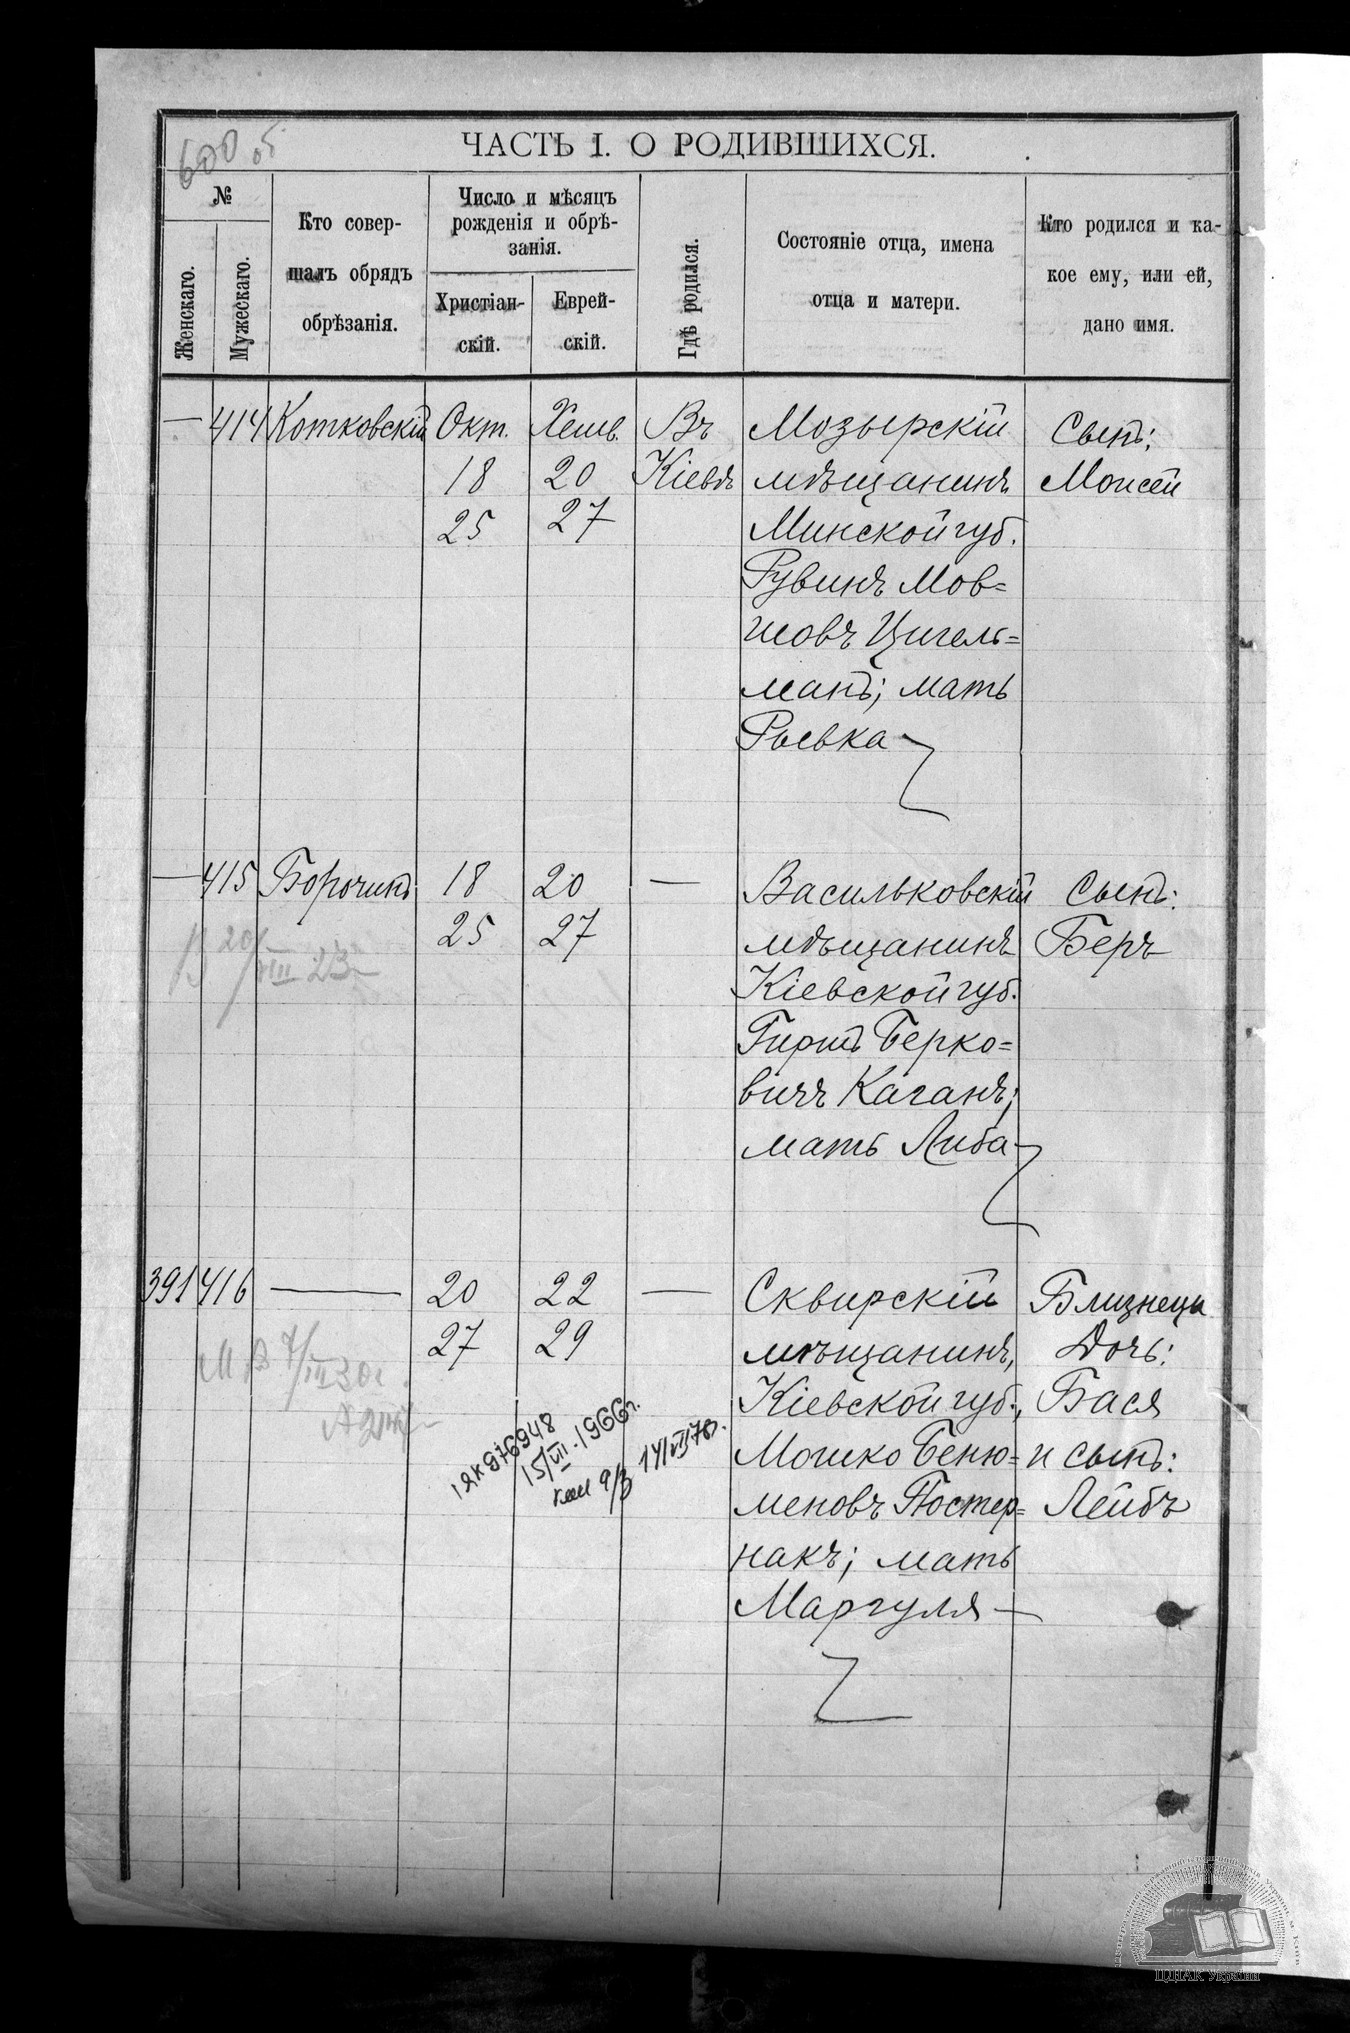 600 об
ЧАСТЬ I. О РОДИВШИХСЯ.
№
Женскаго.
Мужескаго.
Кто совер-
шалъ обрядъ
обрѣзанія.
Число и мѣсяцъ
рожденія и обрѣ-
занія.
Христіан-
скій.
Еврей-
скій.
Гдѣ родился.
Состояніе отца, имена
отца и матери.
Кто родился и ка-
кое ему, или ей,
дано имя.
— 414 Котковскій Окт. Хешв. Въ Мозырскій Сынъ:
18 20 Кіевѣ мѣщанинъ Моисей
25 27 Минской губ.
Рувинъ Мов=
шовъ Цигель=
манъ; мать
Рывка
— 415 Борочинъ 18 20 — Васильковскій Сынъ:
25 27 мѣщанинъ Беръ
Кіевской губ.
Гиршъ Берко=
вичъ Каганъ;
мать Либа
В 20/VIII 23
391 416 — 20 22 — Сквирскій Близнецы
27 29 мѣщанинъ, Дочь:
Кіевской губ., Бася
Мошко Беню= и сынъ:
меновъ Постер= Лейбъ
накъ; мать
Маргуля —
М В 7/III 30г.
ІЯК 976948
15/VII.1966г.
9/3 14/VII 70.
ЦДІАК України